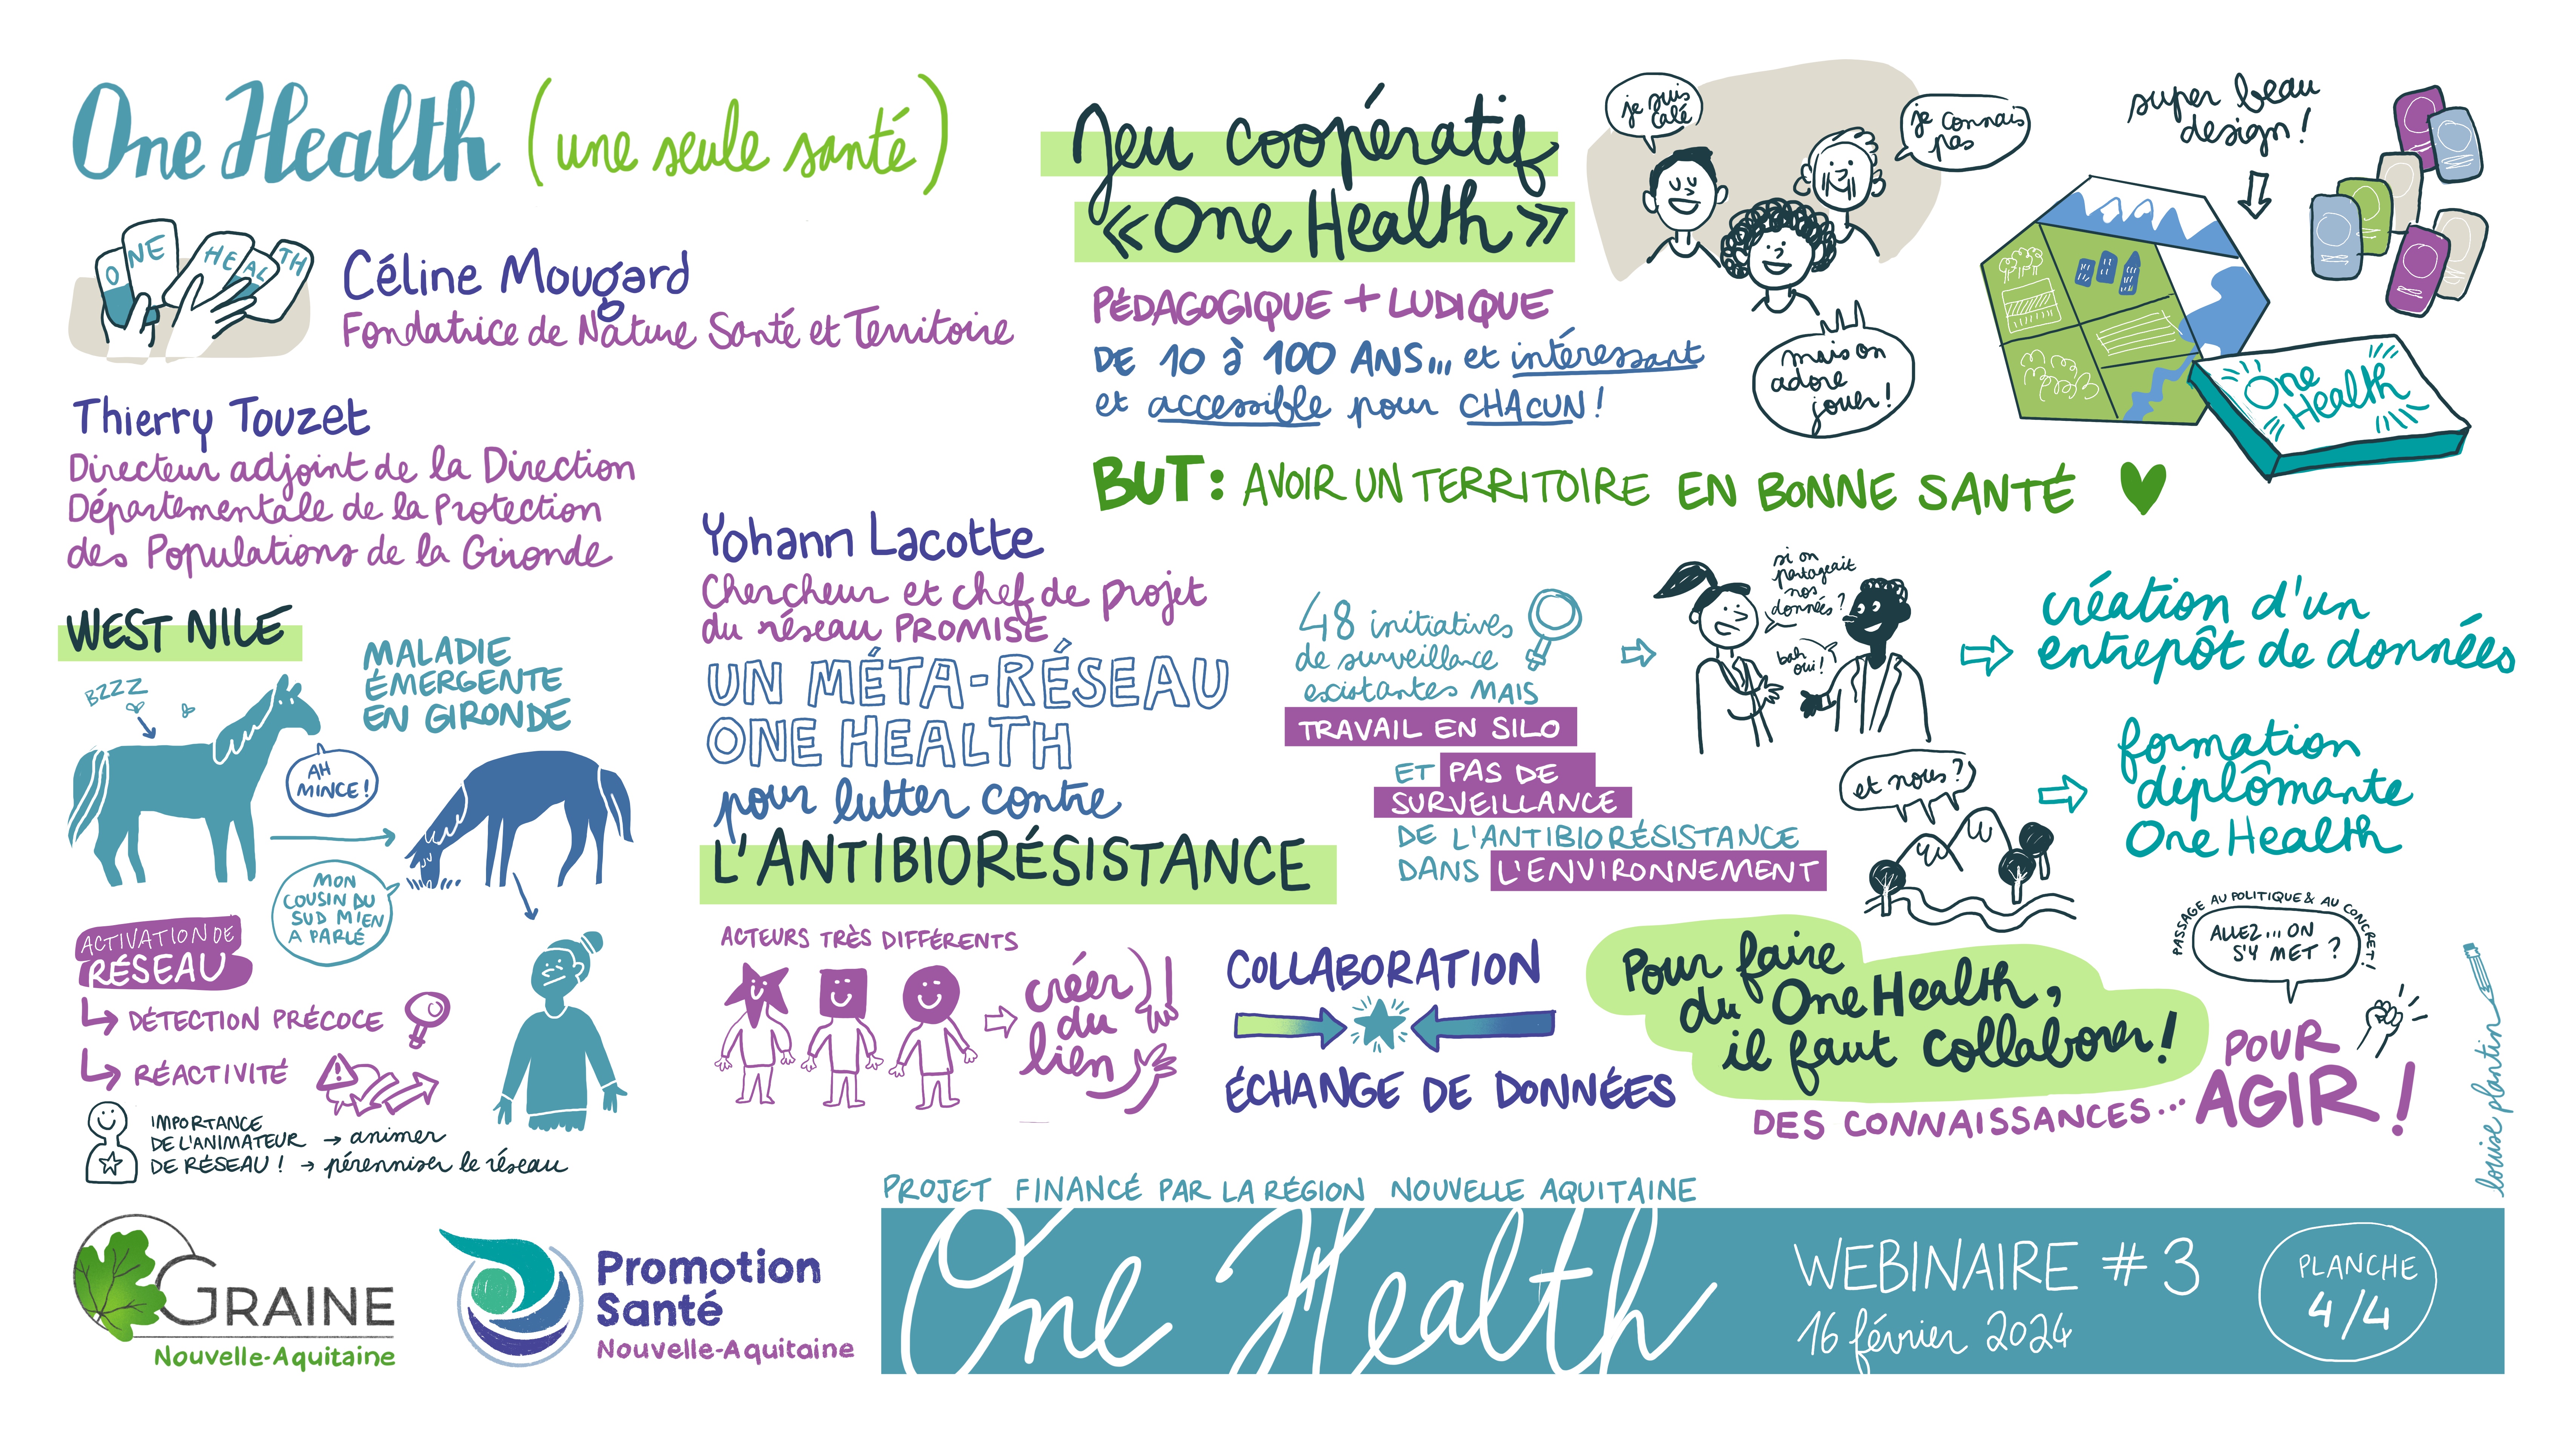 One Health (une seule santé)
ONE HEALTH
Céline Mougard
Fondatrice de Nature Santé et Territoire
Jeu coopératif
« One Health »
PÉDAGOGIQUE + LUDIQUE
DE 10 à 100 ANS... et intéressant
et accessible pour CHACUN !
je suis
calé
je connais
pas
mais on
adore
jouer !
super beau
design !
One
Health
BUT : AVOIR UN TERRITOIRE EN BONNE SANTÉ
Thierry Touzet
Directeur adjoint de la Direction
Départementale de la Protection
des Populations de la Gironde
WEST NILE
MALADIE
ÉMERGENTE
EN GIRONDE
BZZZ
AH
MINCE !
MON
COUSIN DU
SUD M'EN
A PARLÉ
ACTIVATION DE
RÉSEAU
DÉTECTION PRÉCOCE
RÉACTIVITÉ
IMPORTANCE
DE L'ANIMATEUR → animer
DE RÉSEAU ! → pérenniser le réseau
Yohann Lacotte
Chercheur et chef de projet
du réseau PROMISE
UN MÉTA-RÉSEAU
ONE HEALTH
pour lutter contre
L'ANTIBIORÉSISTANCE
48 initiatives
de surveillance
existantes MAIS
TRAVAIL EN SILO
ET PAS DE
SURVEILLANCE
DE L'ANTIBIORÉSISTANCE
DANS L'ENVIRONNEMENT
si on
partageait
nos
données ?
bah
oui !
création d'un
entrepôt de données
et nous ?
formation
diplômante
One Health
ACTEURS TRÈS DIFFÉRENTS
créer
du
lien
!
COLLABORATION
ÉCHANGE DE DONNÉES
Pour faire
du One Health,
il faut collaborer !
DES CONNAISSANCES...
PASSAGE AU POLITIQUE & AU CONCRET !
ALLEZ... ON
S'Y MET ?
POUR
AGIR !
louise plantin
PROJET FINANCÉ PAR LA RÉGION NOUVELLE AQUITAINE
GRAINE
Nouvelle-Aquitaine
Promotion
Santé
Nouvelle-Aquitaine
One Health
WEBINAIRE #3
16 février 2024
PLANCHE
4/4